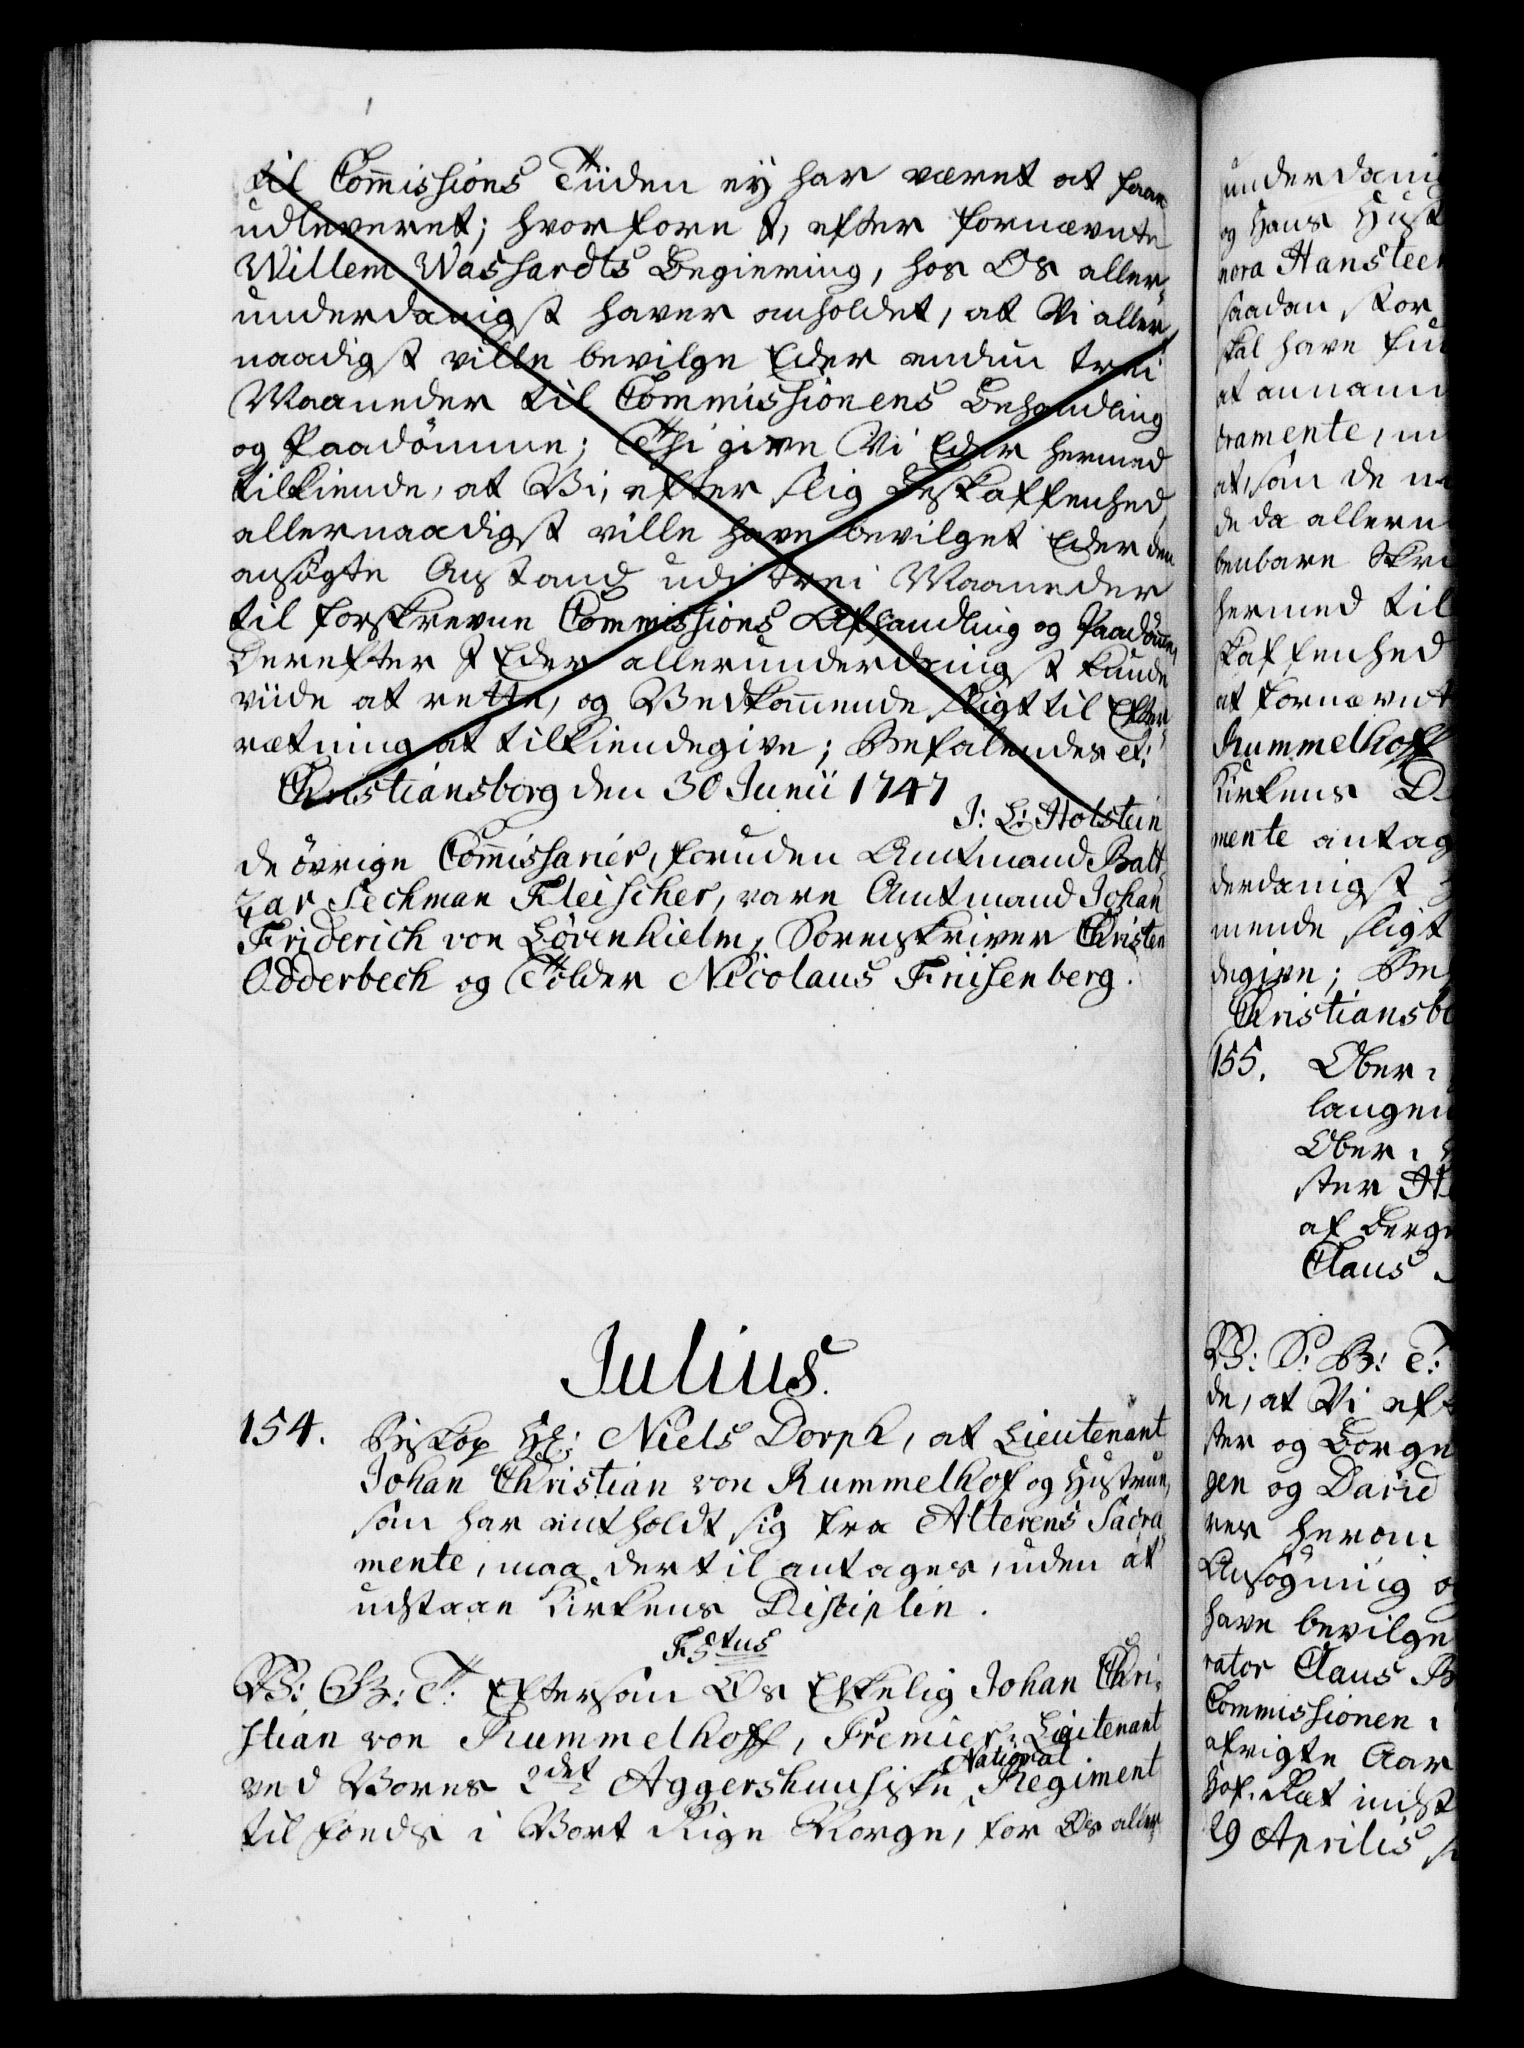 til Commissions Tiiden ej har været at faae
udleveret; hvorfore I, efter fornævnte
Willem Washardts Begiering, hos Os aller-
underdanigst haver anholdet, at Vi aller-
naadigst ville bevilge Eder endnu trei
Maaneder til Commissionens Behandling
og Paadömme; Thi give Vi Eder hermed
tilkiende, at Vi, efter slig Beskaffenhed,
allernaadigst ville have bevilget Eder den
ansøgte Anstand udi trei Maaneder
til forskrevne Commissions Afhandling og Paadömme,
Derefter I Eder allerunderdanigst kunde
viide at rette, og Vedkommende sligt til Efter-
rætning at tilkiendegive; Befalendes et:
Christiansborg den 30 Junii 1747
J: L: Holstein
de övrige Commissarier, foruden Amtmand Balt-
zar Sechman Fleischer, vare Amtmand Johan
Friderich von Lövenhielm, Sorenskriver Christen
Odderbech og Tolder Nicolaus Friisenberg.
Julius.
154. Biskop Hr: Niels Dorph, at Lieutenant
Johan Christian von Rummelhof og Hustrue,
som har entholdt sig fra Alterens Sacra-
mente, maa dertil antages, uden at
udstaae Kirkens Disciplin.
V: G: T: Eftersom Os Elskelig Johan Chri-
stian von Rummelhoff, Premier-Lieutenant
National
ved Vores 2det Aggershuusiske Regiment
til fods i Vort Rige Norge, for Os aller-
underdanig
og Hans Hust
nora Hansteen
saadan stor
skal have
at annam
cramente,
at, som de
de da allern
benbare Skri
hermed til
skaffenhed
at fornævnte
Rummelhoff
Kirkens D
mente antag
derdanigst
mende sligt
degive; Be
Christiansbo
155. Ober-
langen
Ober-
ster H
af Berge
Claus
V: G: T:
de, at Vi eft
ster og Borge
gen og David
ver herom
Ansøgning o
have bevilge
rator Claus B
Commissionen
afvigte Aar
Hof-Ræt indst
29 Aprilis